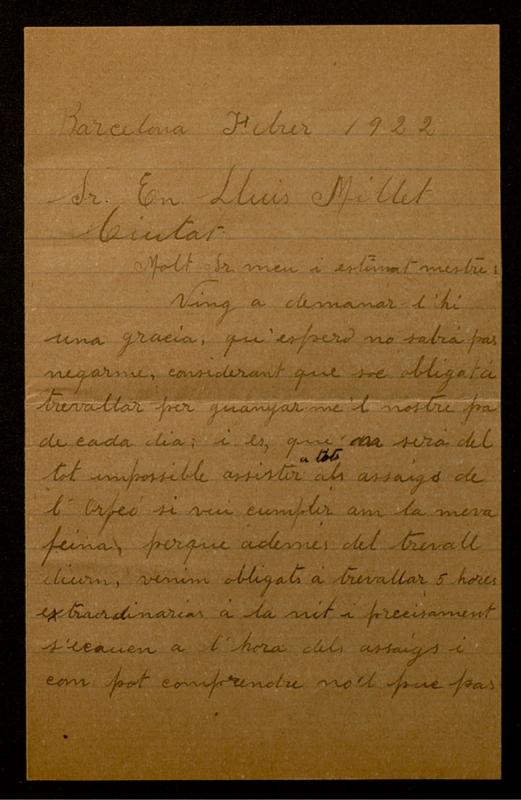 Barcelona Febrer 1922
Sr. En Lluis Millet
Ciutat
Molt Sr. meu i estimat mestre:
Ving a demanar l'hi
una gracia, qu'esperò no sabrá pas
negarme, considerant que soc obligat á
trevallar per guanyarme'l nostre pa
de cada dia; i es, que será del
tot impossible assistir a tots als assaigs de
l'Orfeó si vui cumplir am la meva
feina, perque ademés del trevall
diurn, venim obligats á trevallar 5 hores
extraordinarias á la nit i precisament
s'ecauen a l'hora dels assaigs i
com pot comprendre no'l puc pas